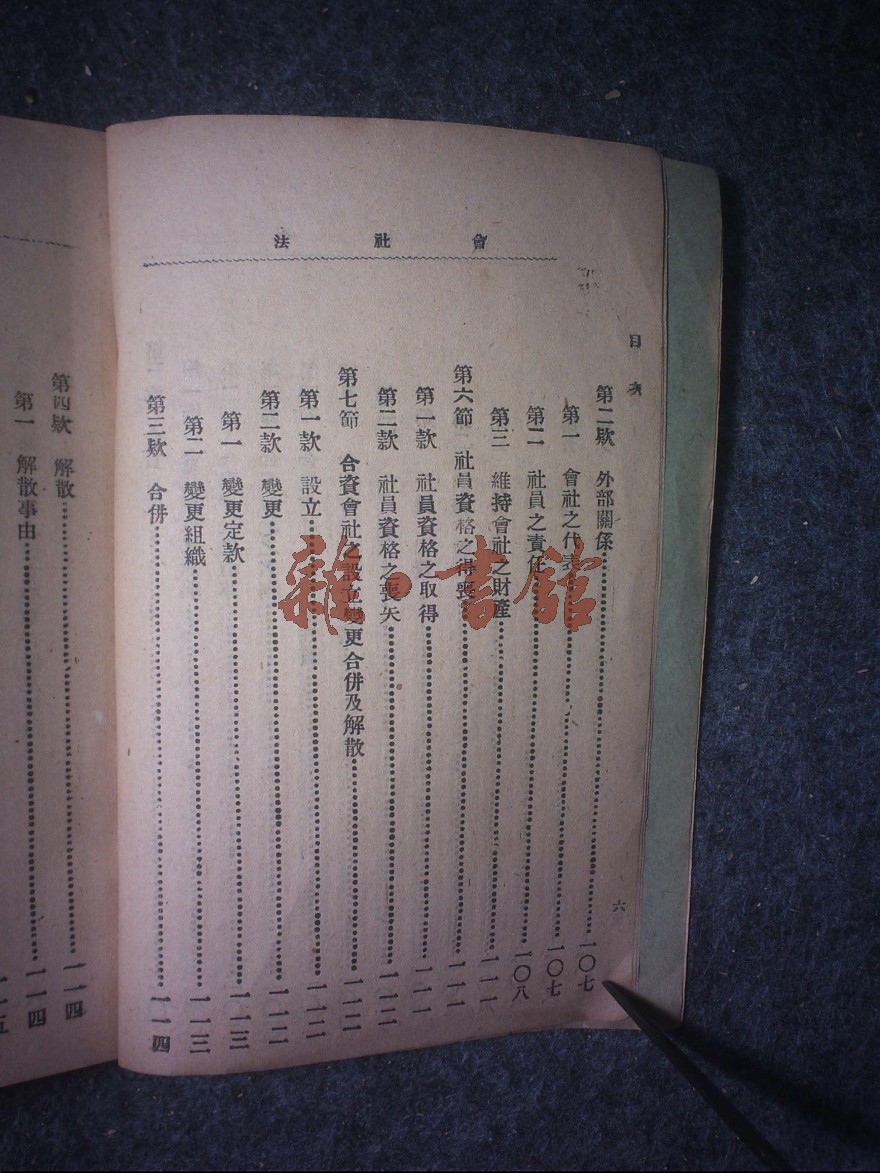 會社法
目次
第二欵 外部關係 一〇七
第一 會社之代表 一〇七
第二 社員之責任 一〇八
第三 維持會社之財產 一一一
第六節 社員資格之得喪 一一一
第一款 社員資格之取得 一一一
第二款 社員資格之喪失 一一二
第七節 合資會社之設立變更合併及解散 一一二
第一款 設立 一一二
第二款 變更 一一二
第一 變更定款 一一三
第二 變更組織 一一三
第三欵 合併 一一四
六
第四欵 解散 一一四
第一 解散事由 一一四
五
雜·書館